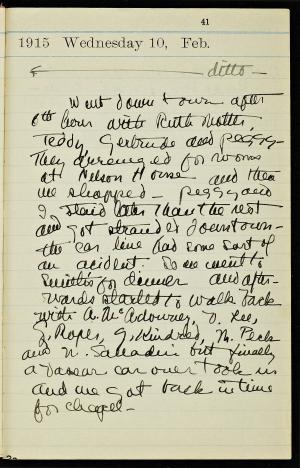 41
1915 Wednesday 10, Feb.
ditto —
Went down town after
6th hour with Ruth
Teddy Gertrude and Peggy—
They arranged for rooms
at Nelson House and then
we shopped — Peggy and
I staid later than the rest
and got stranded downtown—
the car line had some sort of
an accident. So we went to
Smith's for dinner and after-
wards started to walk back
with A. D. Lee,
Hopes, G. Kindred, M. Peck
and N. but finally
a Vassar car over took us
and we got back in time
for chapel—